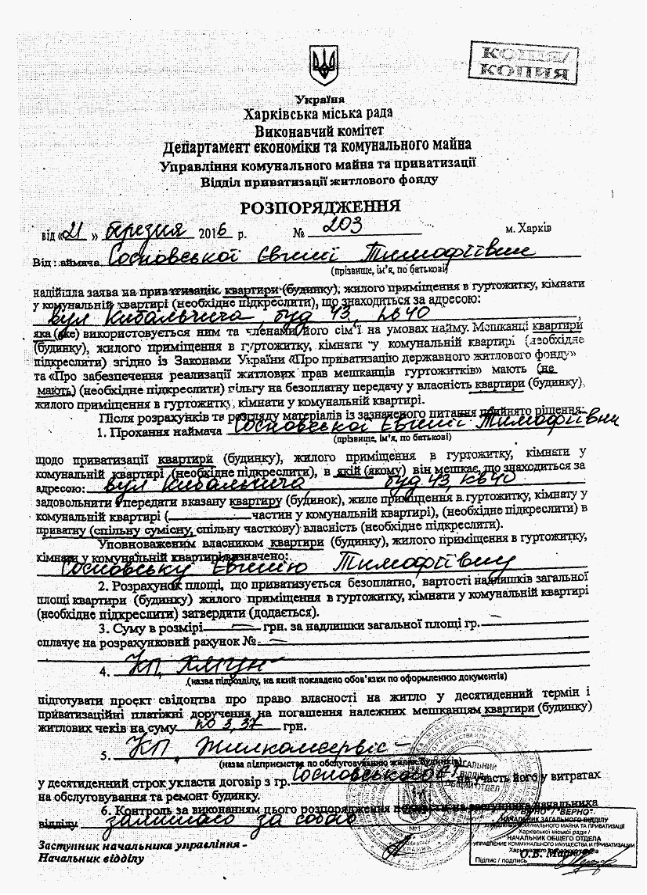 КОПІЯ/
КОПИЯ
Україна
Харківська міська рада
Виконавчий комітет
Департамент економіки та комунального майна
Управління комунального майна та приватизації
Відділ приватизації житлового фонду
РОЗПОРЯДЖЕННЯ
від «21» березня 2016 р. № 203 м. Харків
Від наймача Сосновської Євгенії Тимофіївни
(прізвище, ім'я, по батькові)
надійшла заява на приватизацію квартири (будинку), жилого приміщення в гуртожитку, кімнати
у комунальній квартирі (необхідне підкреслити), що знаходиться за адресою:
вул Кибальчича, буд 43, кв 40
яка (яке) використовується ним та членами його сім'ї на умовах найму. Мешканці квартири
(будинку), жилого приміщення в гуртожитку, кімнати у комунальній квартирі (необхідне
підкреслити) згідно із Законами України «Про приватизацію державного житлового фонду»
та «Про забезпечення реалізації житлових прав мешканців гуртожитків» мають (не
мають) (необхідне підкреслити) пільгу на безоплатну передачу у власність квартири (будинку),
жилого приміщення в гуртожитку, кімнати у комунальній квартирі.
Після розрахунків та розгляду матеріалів із зазначеного питання прийнято рішення:
1. Прохання наймача Сосновської Євгенії Тимофіївни
(прізвище, ім'я, по батькові)
щодо приватизації квартири (будинку), жилого приміщення в гуртожитку, кімнати у
комунальній квартирі (необхідне підкреслити), в якій (якому) він мешкає, що знаходиться за
адресою: вул Кибальчича буд 43 кв 40
задовольнити і передати вказану квартиру (будинок), жиле приміщення в гуртожитку, кімнату у
комунальній квартирі ( частин у комунальній квартирі), (необхідне підкреслити) в
приватну (спільну сумісну, спільну часткову) власність (необхідне підкреслити).
Уповноваженим власником квартири (будинку), жилого приміщення в гуртожитку,
кімнати у комунальній квартирі визначено:
Сосновську Евгенію Тимофіївну
2. Розрахунок площі, що приватизується безоплатно, вартості надлишків загальної
площі квартири (будинку) жилого приміщення в гуртожитку, кімнати у комунальній квартирі
(необхідне підкреслити) затвердити (додається).
3. Суму в розмірі — грн. за надлишки загальної площі гр.
сплачує на розрахунковий рахунок № —
4. КП,
(назва підрозділу, на який покладено обов'язки по оформленню документів)
підготувати проєкт свідоцтва про право власності на житло у десятиденний термін і
приватизаційні платіжні доручення на погашення належних мешканцям квартири (будинку)
житлових чеків на суму 3,37 грн.
5. КП, Жилкомсервіс -
(назва підприємства по обслуговуванню жилих будинків)
у десятиденний строк укласти договір з гр. на участь його у витратах
на обслуговування та ремонт будинку.
6. Контроль за виконанням цього розпорядження начальника
відділу залишаю за собою
Заступник начальника управління -
Начальник відділу
ЗАГАЛЬНИЙ
ВІДДІЛ
ОБЩИЙ ОТДЕЛ
"ВЕРНО"
НАЧАЛЬНИК ЗАГАЛЬНОГО ВІДДІЛУ
УПРАВЛІННЯ КОМУНАЛЬНОГО МАЙНА ТА ПРИВАТИЗАЦІЇ
Харківської міської ради /
НАЧАЛЬНИК ОБЩЕГО ОТДЕЛА
УПРАВЛЕНИЕ КОММУНАЛЬНОГО ИМУЩЕСТВА И ПРИВАТИЗАЦИИ
О.В.
Підпис / подпись